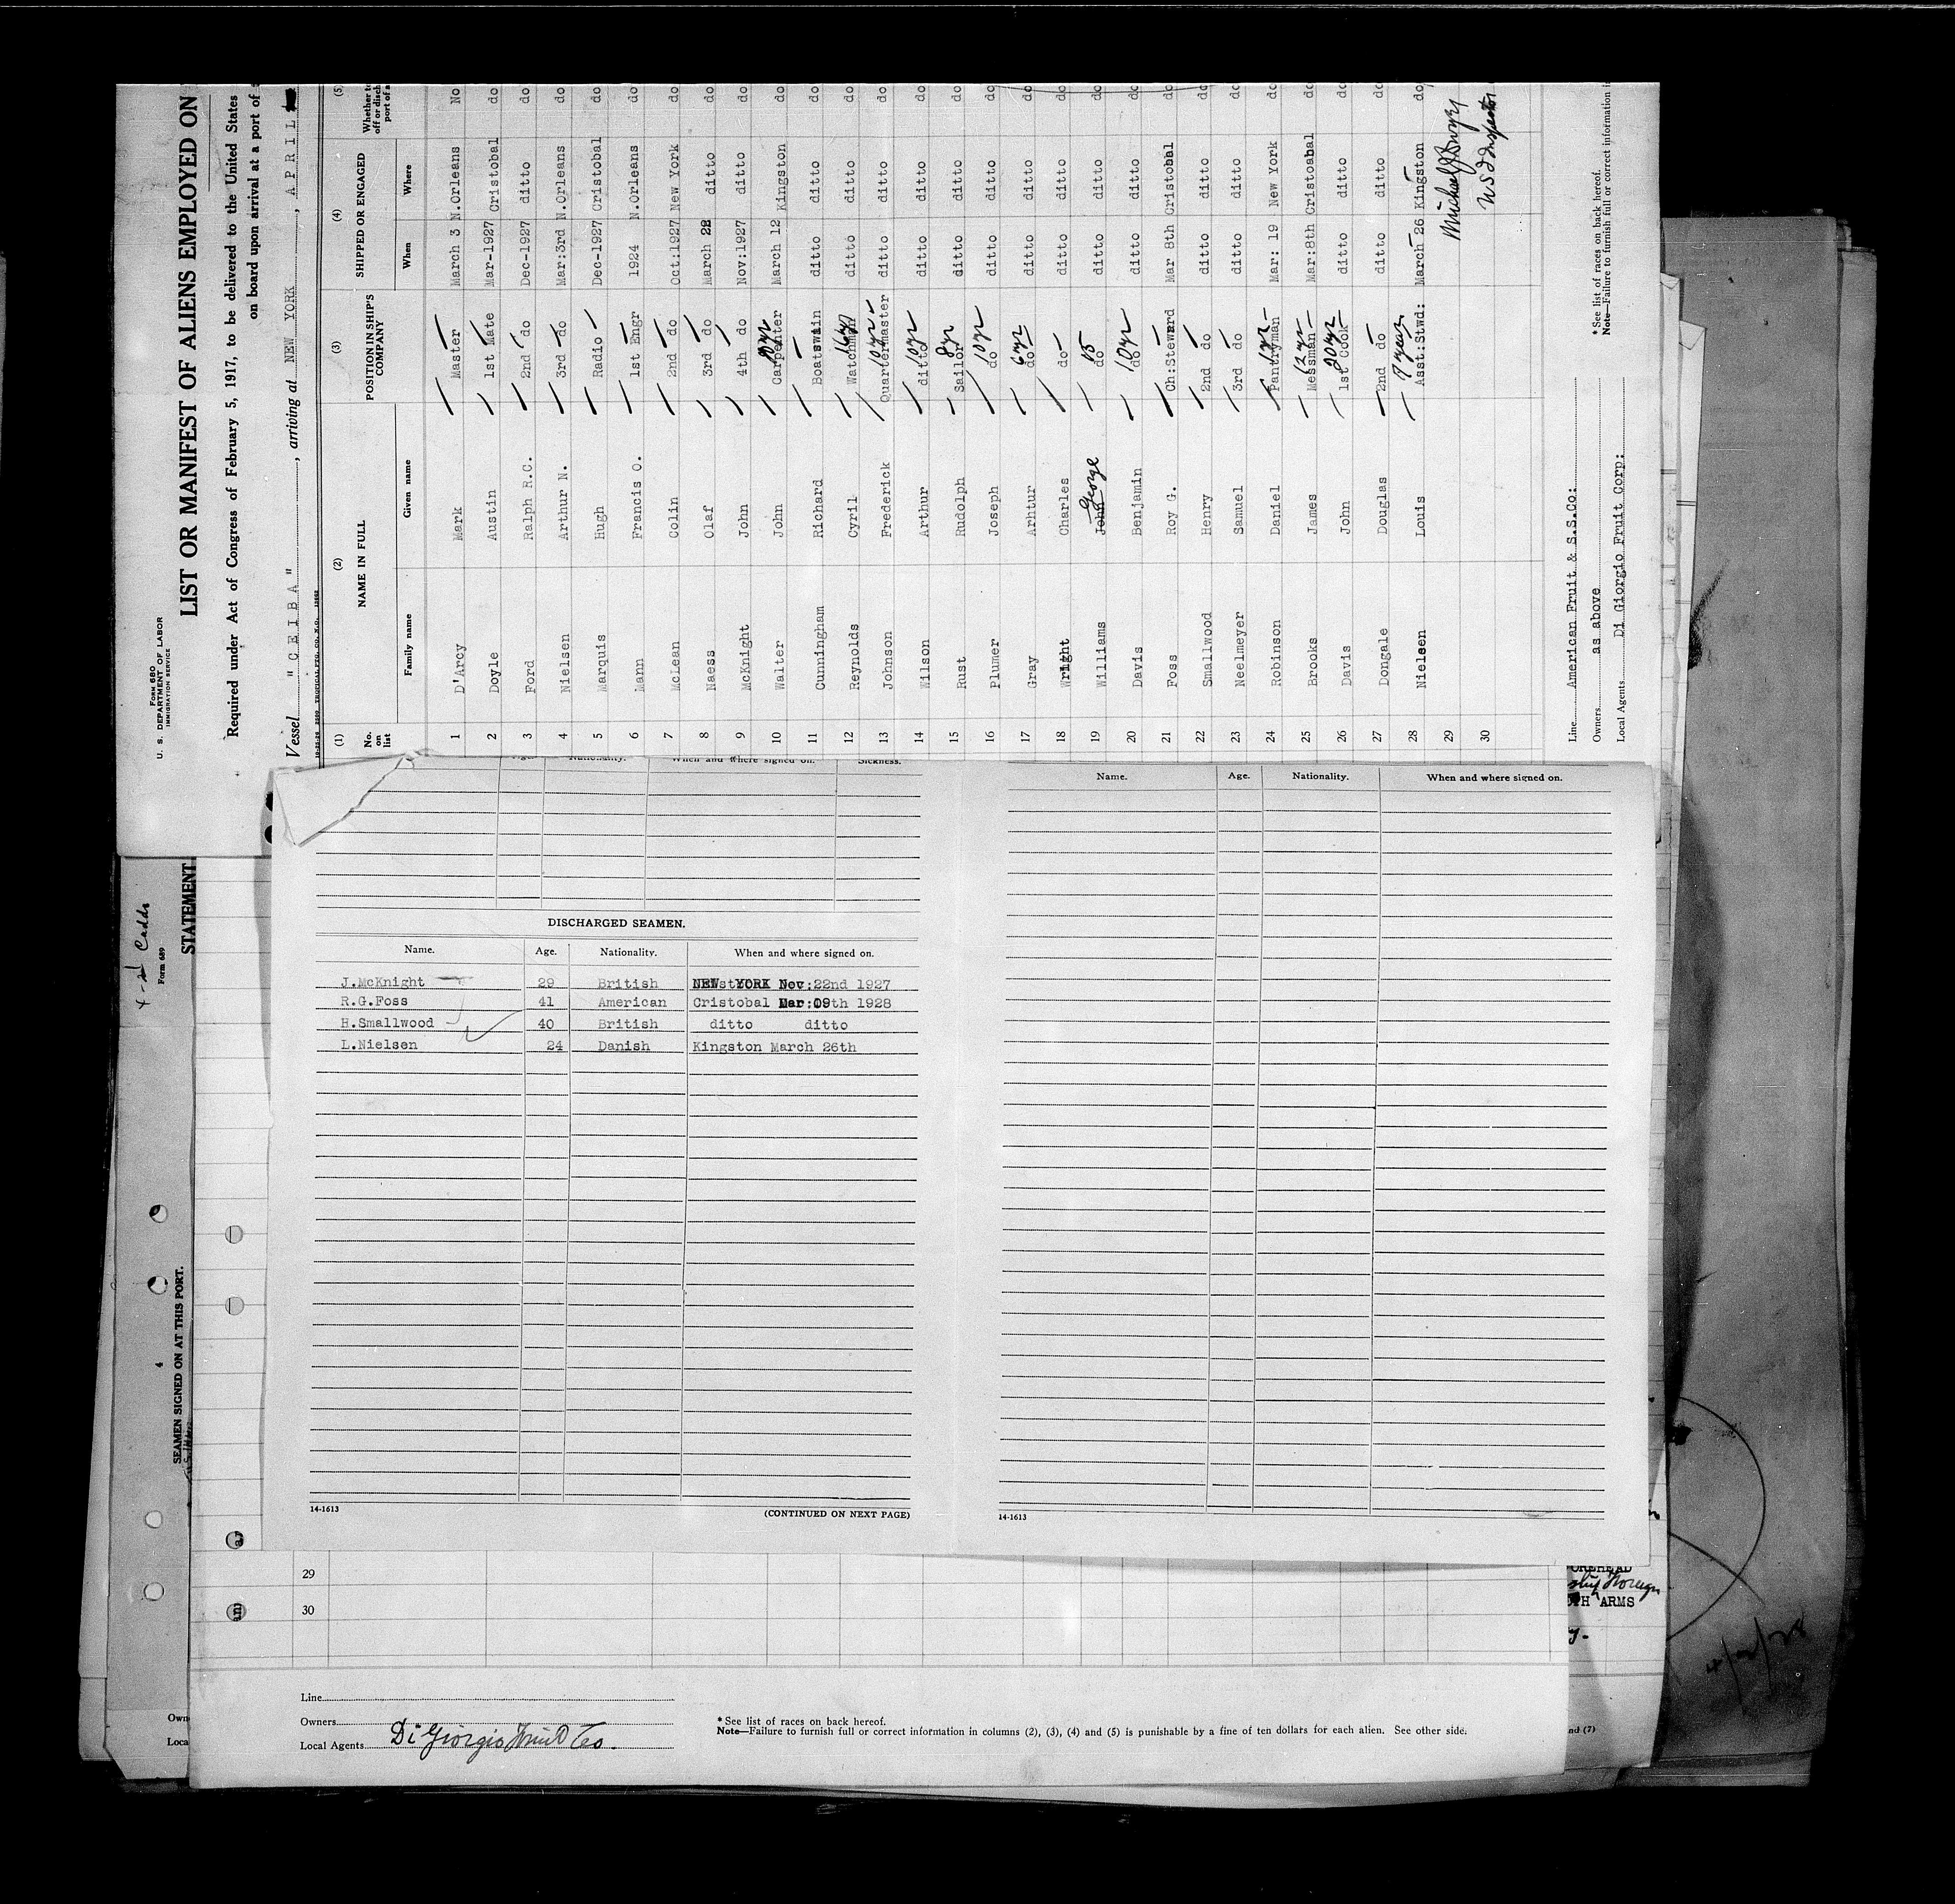 Form 680
U. S. DEPARTMENT OF LABOR
IMMIGRATION SERVICE
LIST OR MANIFEST OF ALIENS EMPLOYED ON
Required under Act of Congress of February 5, 1917, to be delivered to the United States
on board upon arrival at a port of
Vessel "CEIBA", arriving at NEW YORK, APRIL
(1) (2) (3) (4) (5)
No. on list NAME IN FULL POSITION IN SHIP'S COMPANY SHIPPED OR ENGAGED Whether to
Family name Given name When Where
1 D'Arcy Mark Master March 3 N.Orleans No
2 Doyle Austin 1st Mate Mar-1927 Cristobal do
3 Ford Ralph R.C. 2nd do Dec-1927 ditto do
4 Nielsen Arthur N. 3rd do Mar:3rd N.Orleans do
5 Marquis Hugh Radio Dec-1927 Cristobal do
6 Mann Francis O. 1st Engr 1924 N.Orleans do
7 McLean Colin 2nd do Oct:1927 New York do
8 Naess Olaf 3rd do March 22 ditto do
9 McKnight John 4th do Nov:1927 ditto do
10 Walter John Carpenter March 12 Kingston do
11 Cunningham Richard Boatswain ditto ditto do
12 Reynolds Cyril Watchman 16yr ditto ditto do
13 Johnson Frederick Quartermaster 10yr ditto ditto do
14 Wilson Arthur ditto 10yr ditto ditto do
15 Rust Rudolph Sailor 8yr ditto ditto do
16 Plumer Joseph do 10yr ditto ditto do
17 Gray Arhtur do 6yr ditto ditto do
18 Wright Charles do ditto ditto do
19 Williams John George do 15 ditto ditto do
20 Davis Benjamin do 10yr ditto ditto do
21 Foss Roy G. Ch:Steward Mar 8th Cristobal do
22 Smallwood Henry 2nd do ditto ditto do
23 Neelmeyer Samuel 3rd do ditto ditto do
24 Robinson Daniel Pantryman Mar: 19 New York do
25 Brooks James Messman 12yr Mar:8th Cristobal do
26 Davis John 1st Cook 20yr ditto ditto do
27 Dongale Douglas 2nd do ditto ditto do
28 Nielsen Louis Asst:Stwd: 7 years March 26 Kingston do
29
30
Line American Fruit & S.S.Co:
Owners as above
Local Agents Di Giorgio Fruit Corp:
*See list of races on back hereof.
Note—Failure to furnish full or correct information
Form 689
STATEMENT
SEAMEN SIGNED ON AT THIS PORT.
4
When and where signed on. Sickness.
DISCHARGED SEAMEN.
Name. Age. Nationality. When and where signed on.
J.McKnight 29 British NEW YORK Nov:22nd 1927
R.G.Foss 41 American Cristobal Mar:09th 1928
H.Smallwood 40 British ditto ditto
L.Nielsen 24 Danish Kingston March 26th
14-1613
(CONTINUED ON NEXT PAGE)
Name. Age. Nationality. When and where signed on.
14-1613
29
30
Line
Owners
Local Agents Di Giorgio Fruit Co.
*See list of races on back hereof.
Note—Failure to furnish full or correct information in columns (2), (3), (4) and (5) is punishable by a fine of ten dollars for each alien. See other side.
ARMS
nd (7)